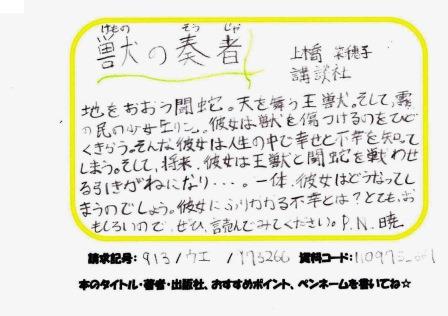 けもの そうじゃ
獣の奏者 上橋 菜穂子
講談社
地をおおう闘蛇。天を舞う王獣。そして、霧
の民の少女エリン。彼女は獣を傷つけるのをひど
くきらう。そんな彼女は人生の中で幸せと不幸を知って
しまう。そして、将来、彼女は王獣と闘蛇を戦わせ
る引きがねになり・・・。一体、彼女はどうなってし
まうのでしょう。彼女にふりかかる不幸とは?とても、お
もしろいので、ぜひ、読んでみてください。P.N.暁
請求記号: 913 /ウエ / 資料コード:
本のタイトル・著者・出版社、おすすめポイント、ペンネームを書いてね☆